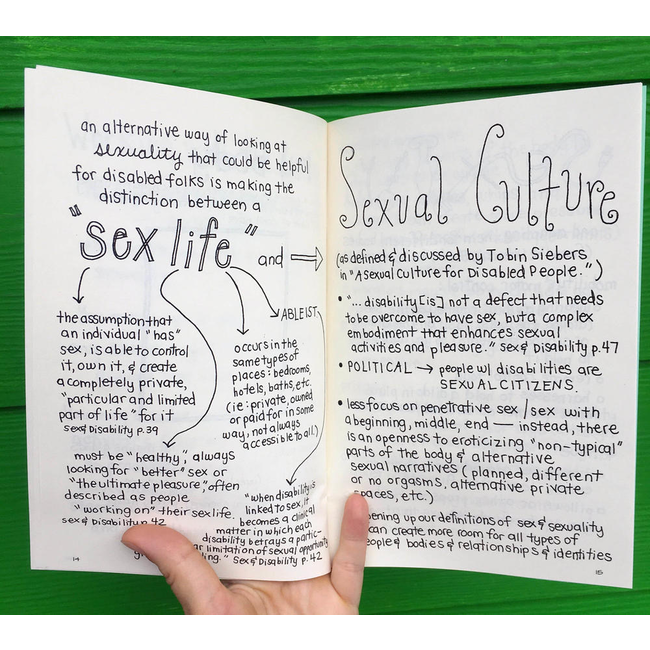 an alternative way of looking at
sexuality that could be helpful
for disabled folks is making the
distinction between a
"sex life" and →
the assumption that
an individual "has"
sex, is able to control
it, own it, & create
a completely private,
"particular and limited
part of life" for it
sex & Disability p.39
must be "healthy", always
looking for "better" sex or
"the ultimate pleasure", often
described as people
"working on" their sex life.
sex & Disability p.42
occurs in the
same types of
places: bedrooms,
hotels, baths, etc.
(ie: private, owned
or paid for in some
way, not always
accessible to all.)
ABLEIST
"when disability is
linked to sex, it
becomes a clinical
matter in which each
disability betrays a partic-
ar limitation of sexual opportunity
ling." Sex & Disability p.42
14
Sexual Culture
(as defined & discussed by Tobin Siebers
in "A sexual Culture for Disabled People.")
• "... disability [is] not a defect that needs
to be overcome to have sex, but a complex
embodiment that enhances sexual
activities and pleasure." sex & Disability p.47
• POLITICAL → people w/ disabilities are
SEXUAL CITIZENS.
• less focus on penetrative sex / sex with
a beginning, middle, end — instead, there
is an openness to eroticizing "non-typical"
parts of the body & alternative
sexual narratives (planned, different
or no orgasms, alternative private
spaces, etc.)
ening up our definitions of sex & sexuality
can create more room for all types of
eople & bodies & relationships & identities
15